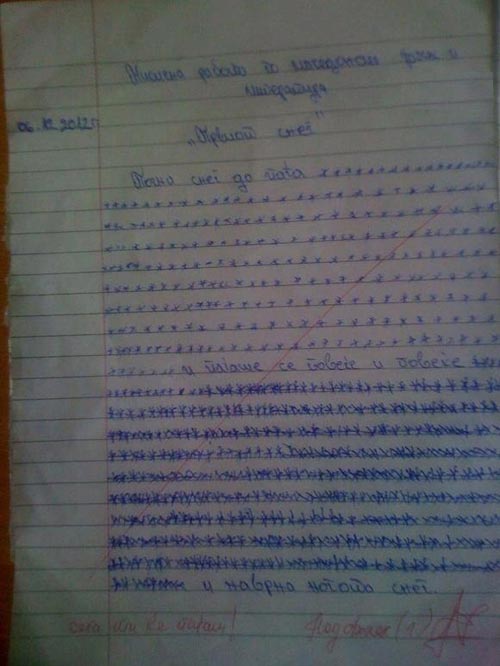 Писмена работа по македонски јазик и
литература
06.12.2012г
„Првиот снег"
Почна снег да паѓа
и паѓаше се повеќе и повеќе
и наврна снег.
сега ти ќе паѓаш! Недоволен (1)